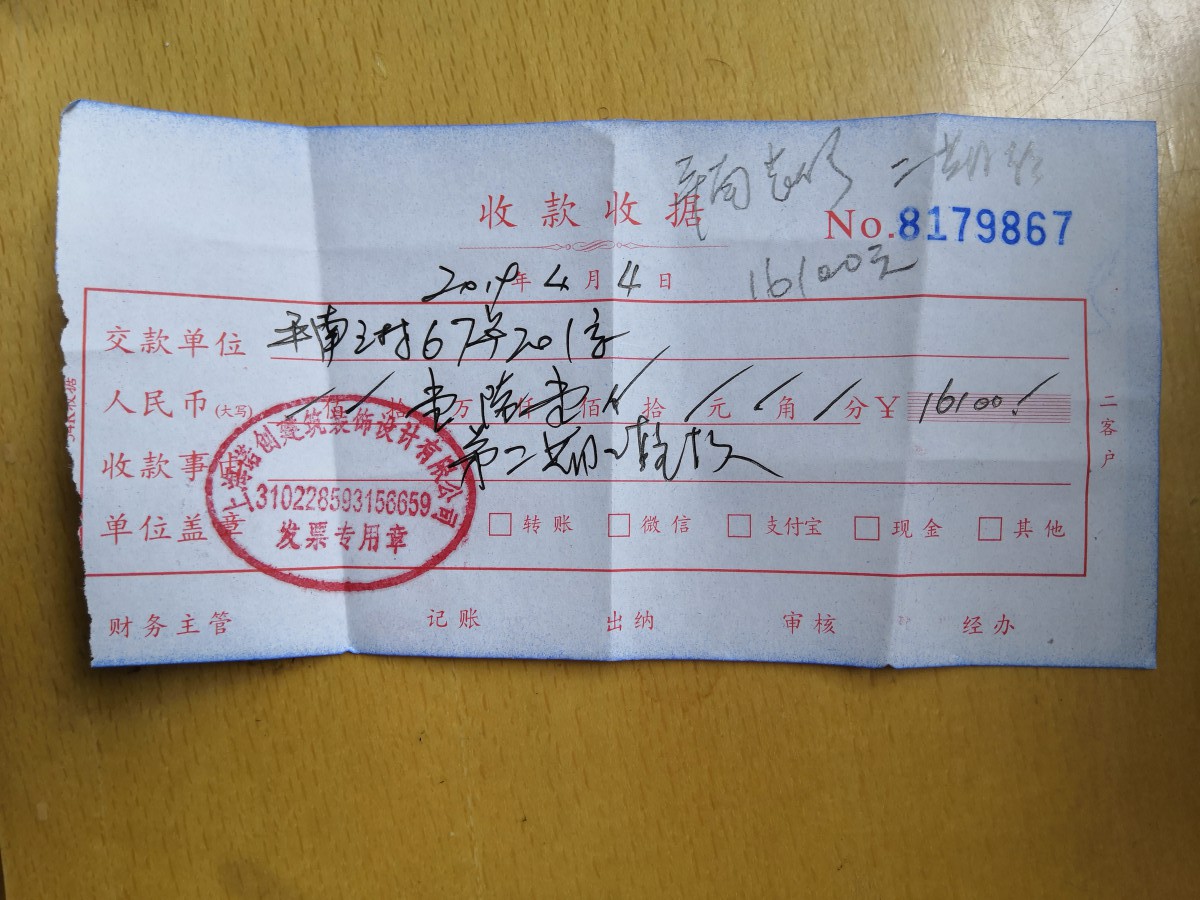 二期
收款收据
No.8179867
16100元
2019年4月4日
交款单位 平南三村67号201室
人民币(大写) 佰 拾 壹万 陆仟 壹佰 拾 元 角 分 ¥ 16100
收款事由 第二期工程款
单位盖章 转账 微信 支付宝 现金 其他
创建筑装饰设计有限公司
310228593156659
发票专用章
二客户
财务主管 记账 出纳 审核 经办